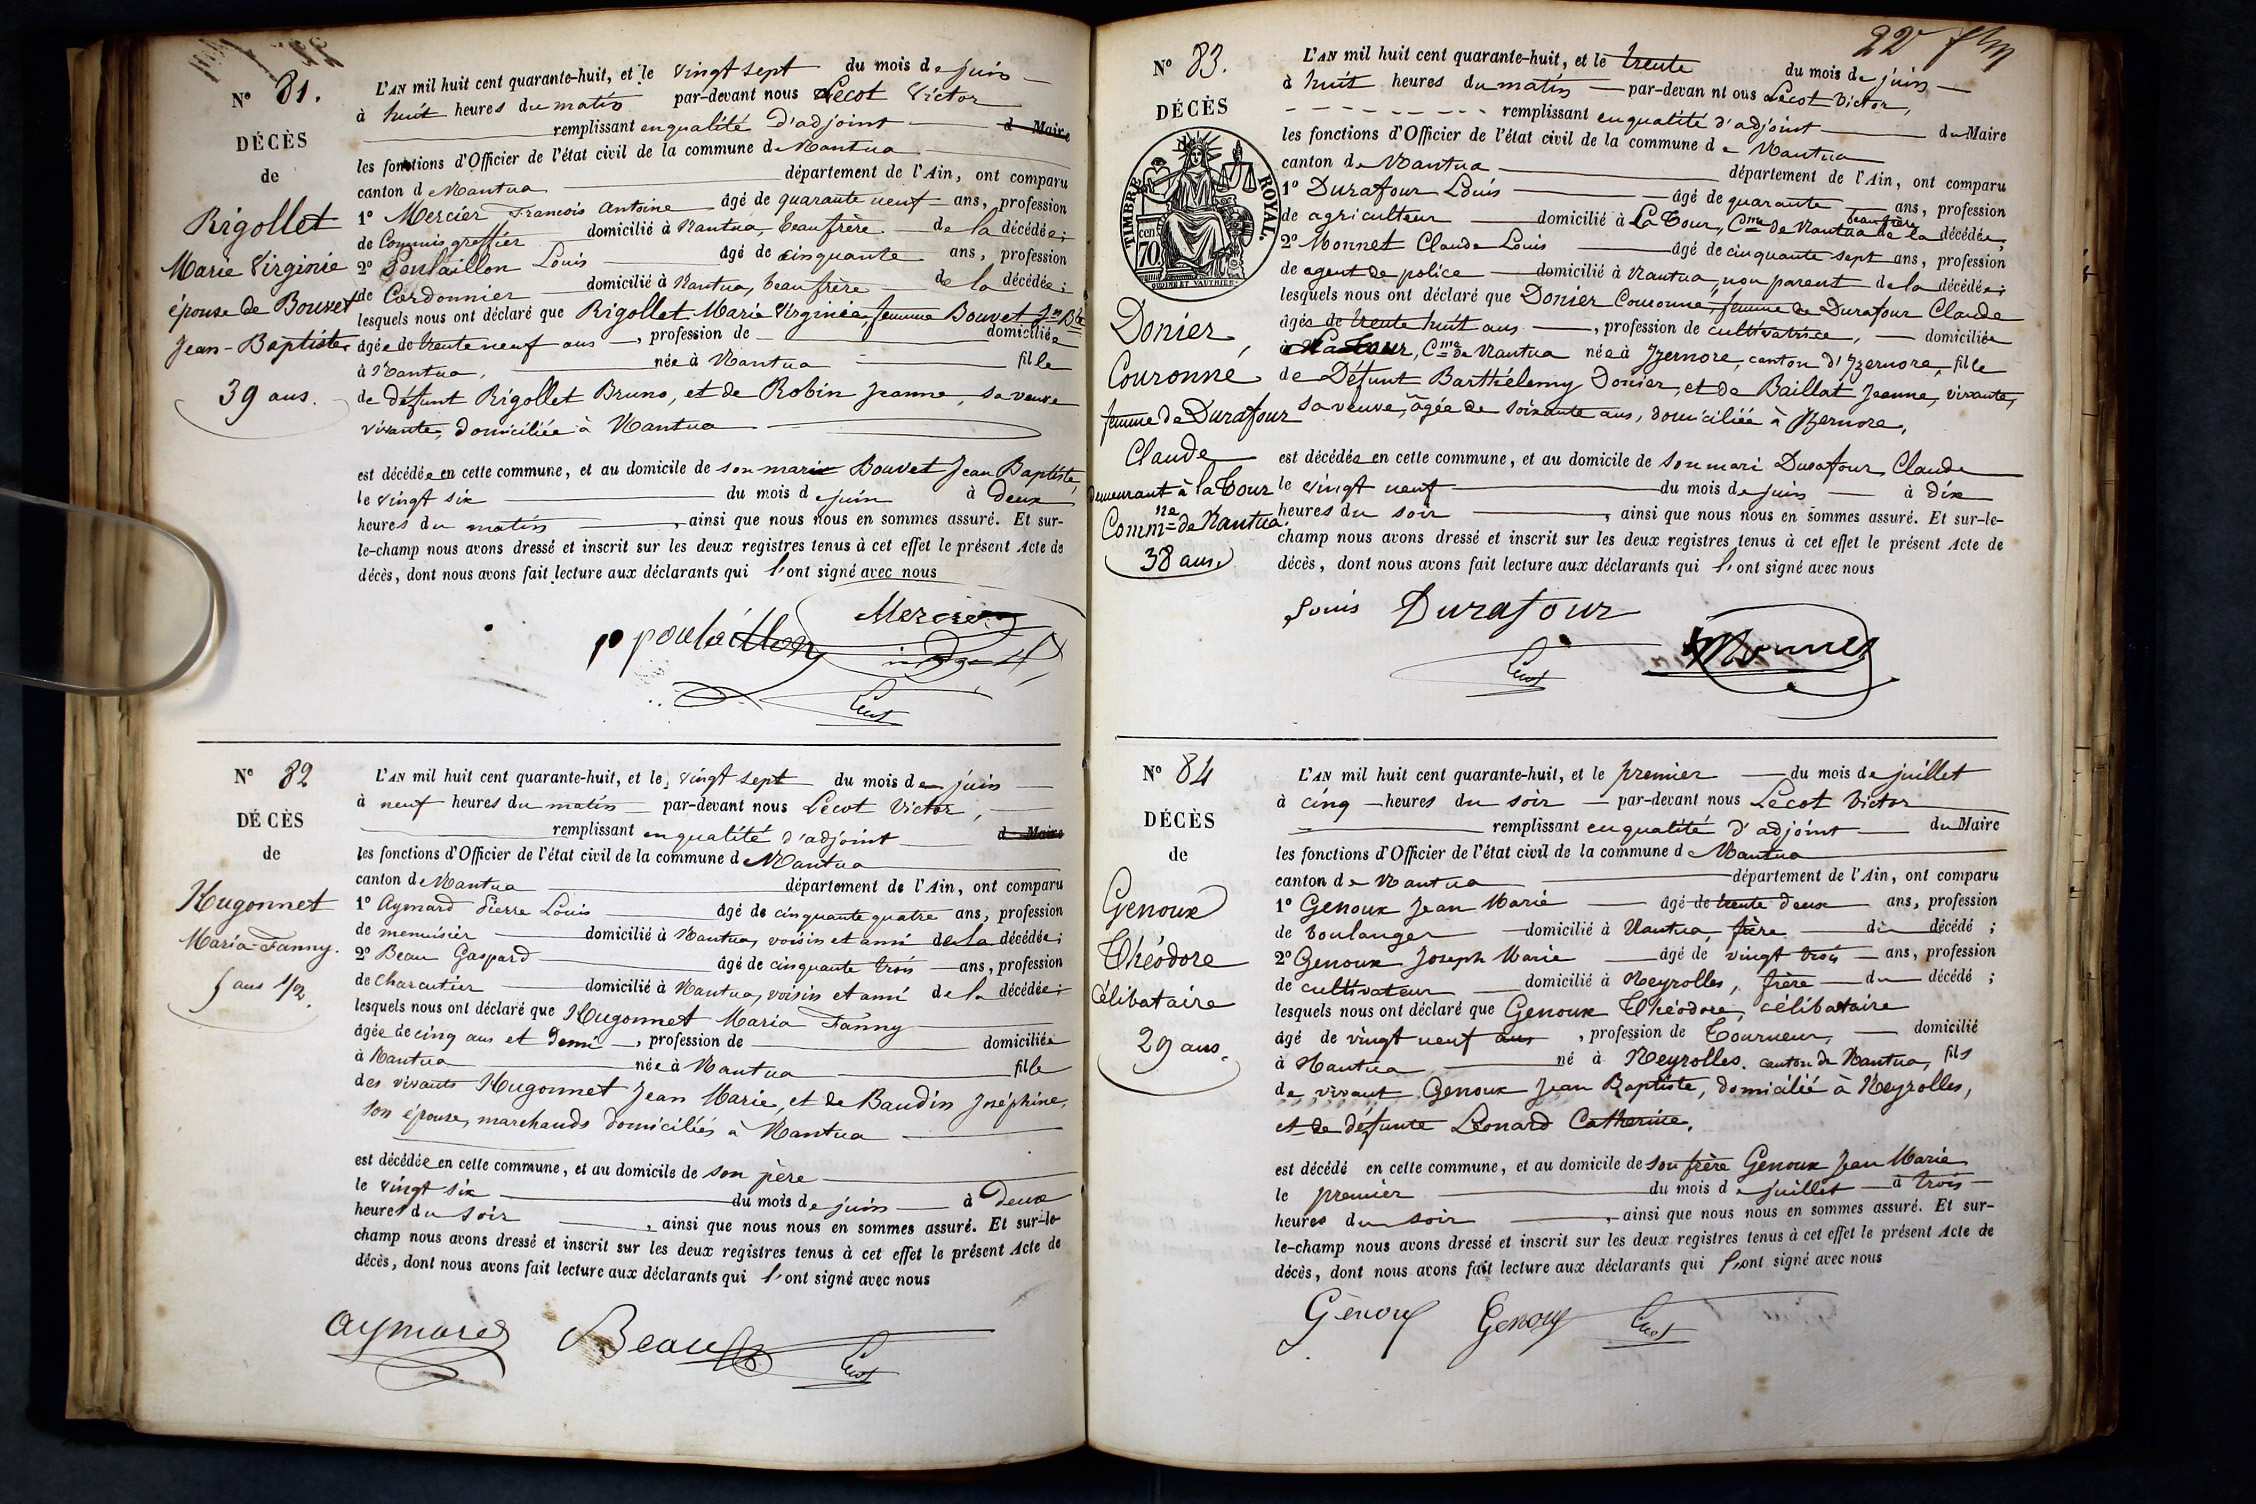 N° 81.
DÉCÈS
de
Rigollet
Marie Virginie
épouse de Bouvet
Jean-Baptiste
39 ans.
L'AN mil huit cent quarante-huit, et le vingt sept du mois de juin
à huit heures du matin par-devant nous Lecot Victor
remplissant en qualité d'adjoint d Maire
les fonctions d'Officier de l'état civil de la commune de Nantua
canton de Nantua département de l'Ain, ont comparu
1° Mercier François Antoine âgé de quarante neuf ans, profession
de Commis greffier domicilié à Nantua, beau frère de la décédée;
2° Poulaillon Louis âgé de cinquante ans, profession
de Cordonnier domicilié à Nantua, beau frère de la décédée;
lesquels nous ont déclaré que Rigollet Marie Virginie, femme Bouvet Jn Bte
âgée de trente neuf ans, profession de domiciliée
à Nantua, née à Nantua fille
de défunt Rigollet Bruno, et de Robin Jeanne, sa veuve
vivante, domiciliée à Nantua
est décédée en cette commune, et au domicile de son mari Bouvet Jean Baptiste
le vingt six du mois de juin à deux
heures du matin, ainsi que nous nous en sommes assuré. Et sur-
le-champ nous avons dressé et inscrit sur les deux registres tenus à cet effet le présent Acte de
décès, dont nous avons fait lecture aux déclarants qui l'ont signé avec nous
Mercier
poulaillon
Lecot
N° 82
DÉCÈS
de
Hugonnet
Maria-Fanny.
5 ans 1/2.
L'AN mil huit cent quarante-huit, et le vingt sept du mois de juin
à neuf heures du matin par-devant nous Lecot Victor,
remplissant en qualité d'adjoint d Maire
les fonctions d'Officier de l'état civil de la commune de Nantua
canton de Nantua département de l'Ain, ont comparu
1° Aymard Pierre Louis âgé de cinquante quatre ans, profession
de menuisier domicilié à Nantua, voisin et ami de la décédée;
2° Beau Gaspard âgé de cinquante trois ans, profession
de charcutier domicilié à Nantua, voisin et ami de la décédée;
lesquels nous ont déclaré que Hugonnet Maria Fanny
âgée de cinq ans et demi, profession de domiciliée
à Nantua née à Nantua fille
des vivants Hugonnet Jean Marie, et de Baudin Joséphine,
son épouse, marchands domiciliés à Nantua
est décédée en cette commune, et au domicile de son père
le vingt six du mois de juin à deux
heures du soir, ainsi que nous nous en sommes assuré. Et sur-le-
champ nous avons dressé et inscrit sur les deux registres tenus à cet effet le présent Acte de
décès, dont nous avons fait lecture aux déclarants qui l'ont signé avec nous
aymard Beau Lecot
22e
N° 83.
DÉCÈS
TIMBRE ROYAL.
70 cen
Donier,
Couronné
femme de Durafour
Claude
demeurant à la Tour
Commne de Nantua.
38 ans.
L'AN mil huit cent quarante-huit, et le trente du mois de juin
à huit heures du matin par-devan nt ous Lecot Victor,
remplissant en qualité d'adjoint du Maire
les fonctions d'Officier de l'état civil de la commune de Nantua
canton de Nantua département de l'Ain, ont comparu
1° Durafour Louis âgé de quarante ans, profession
de agriculteur domicilié à La Tour, Cne de Nantua beau frère de la décédée;
2° Monnet Claude Louis âgé de cinquante sept ans, profession
de agent de police domicilié à Nantua, non parent de la décédée;
lesquels nous ont déclaré que Donier Couronné, femme de Durafour Claude
âgée de trente huit ans, profession de cultivatrice, domiciliée
à La Tour, Cne de Nantua née à Izernore, canton d'Izernore, fille
de Défunt Barthélemy Donier, et de Baillat Jeanne, vivante,
sa veuve, âgée de soixante ans, domiciliée à Izernore,
est décédée en cette commune, et au domicile de son mari Durafour Claude
le vingt neuf du mois de juin à dix
heures du soir, ainsi que nous nous en sommes assuré. Et sur-le-
champ nous avons dressé et inscrit sur les deux registres tenus à cet effet le présent Acte de
décès, dont nous avons fait lecture aux déclarants qui l'ont signé avec nous
Louis Durafour
Lecot Monnet
N° 84
DÉCÈS
de
Genoux
Théodore
Célibataire
29 ans.
L'AN mil huit cent quarante-huit, et le premier du mois de juillet
à cinq heures du soir par-devant nous Lecot Victor
remplissant en qualité d'adjoint du Maire
les fonctions d'Officier de l'état civil de la commune de Nantua
canton de Nantua département de l'Ain, ont comparu
1° Genoux Jean Marie âgé de trente deux ans, profession
de boulanger domicilié à Nantua, frère du décédé;
2° Genoux Joseph Marie âgé de vingt trois ans, profession
de cultivateur domicilié à Neyrolles, frère du décédé;
lesquels nous ont déclaré que Genoux Théodore, célibataire
âgé de vingt neuf ans, profession de Tourneur, domicilié
à Nantua né à Neyrolles, canton de Nantua, fils
de vivant Genoux Jean Baptiste, domicilié à Neyrolles,
et de défunte Léonard Catherine.
est décédé en cette commune, et au domicile de son frère Genoux Jean Marie
le premier du mois de juillet à trois
heures du soir, ainsi que nous nous en sommes assuré. Et sur-
le-champ nous avons dressé et inscrit sur les deux registres tenus à cet effet le présent Acte de
décès, dont nous avons fait lecture aux déclarants qui l'ont signé avec nous
Genoux Genoux Lecot